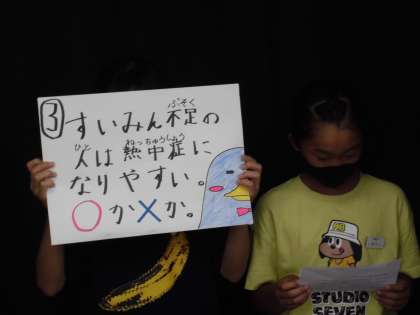 ③すいみん不足の
人は熱中症に
なりやすい。
○か×か。
ぶそく
ひと
ねっちゅうしょう
STUDIO
SEVEN